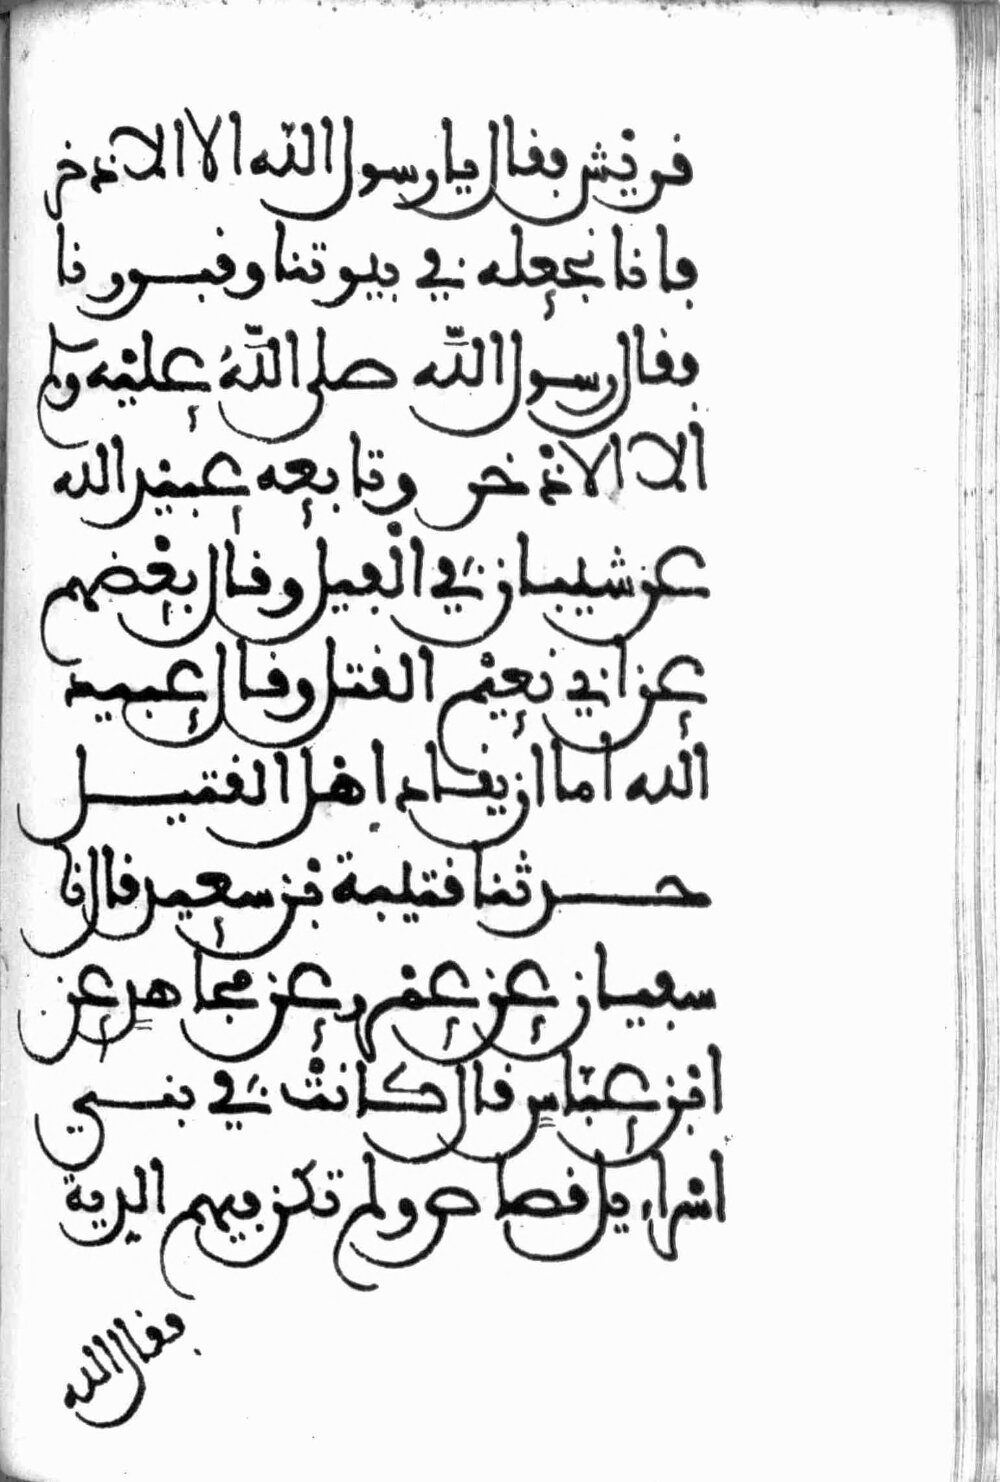 قريش فقال يا رسول الله الا الاذخر
فانا نجعله في بيوتنا وقبورنا
فقال رسول الله صلى الله عليه وسلم
الا الاذخر وتابعه عبيد الله
عن شيبان في الفيل وقال بعضهم
عن ابي نعيم القتل وقال عبيد
الله اما ان يقاد اهل القتيل
حدثنا قتيبة بن سعيد قال نا
سفيان عن عمرو عن مجاهد عن
ابن عباس قال كانت في بني
اسراءيل قصاص ولم تكن فيهم الدية
فقال الله